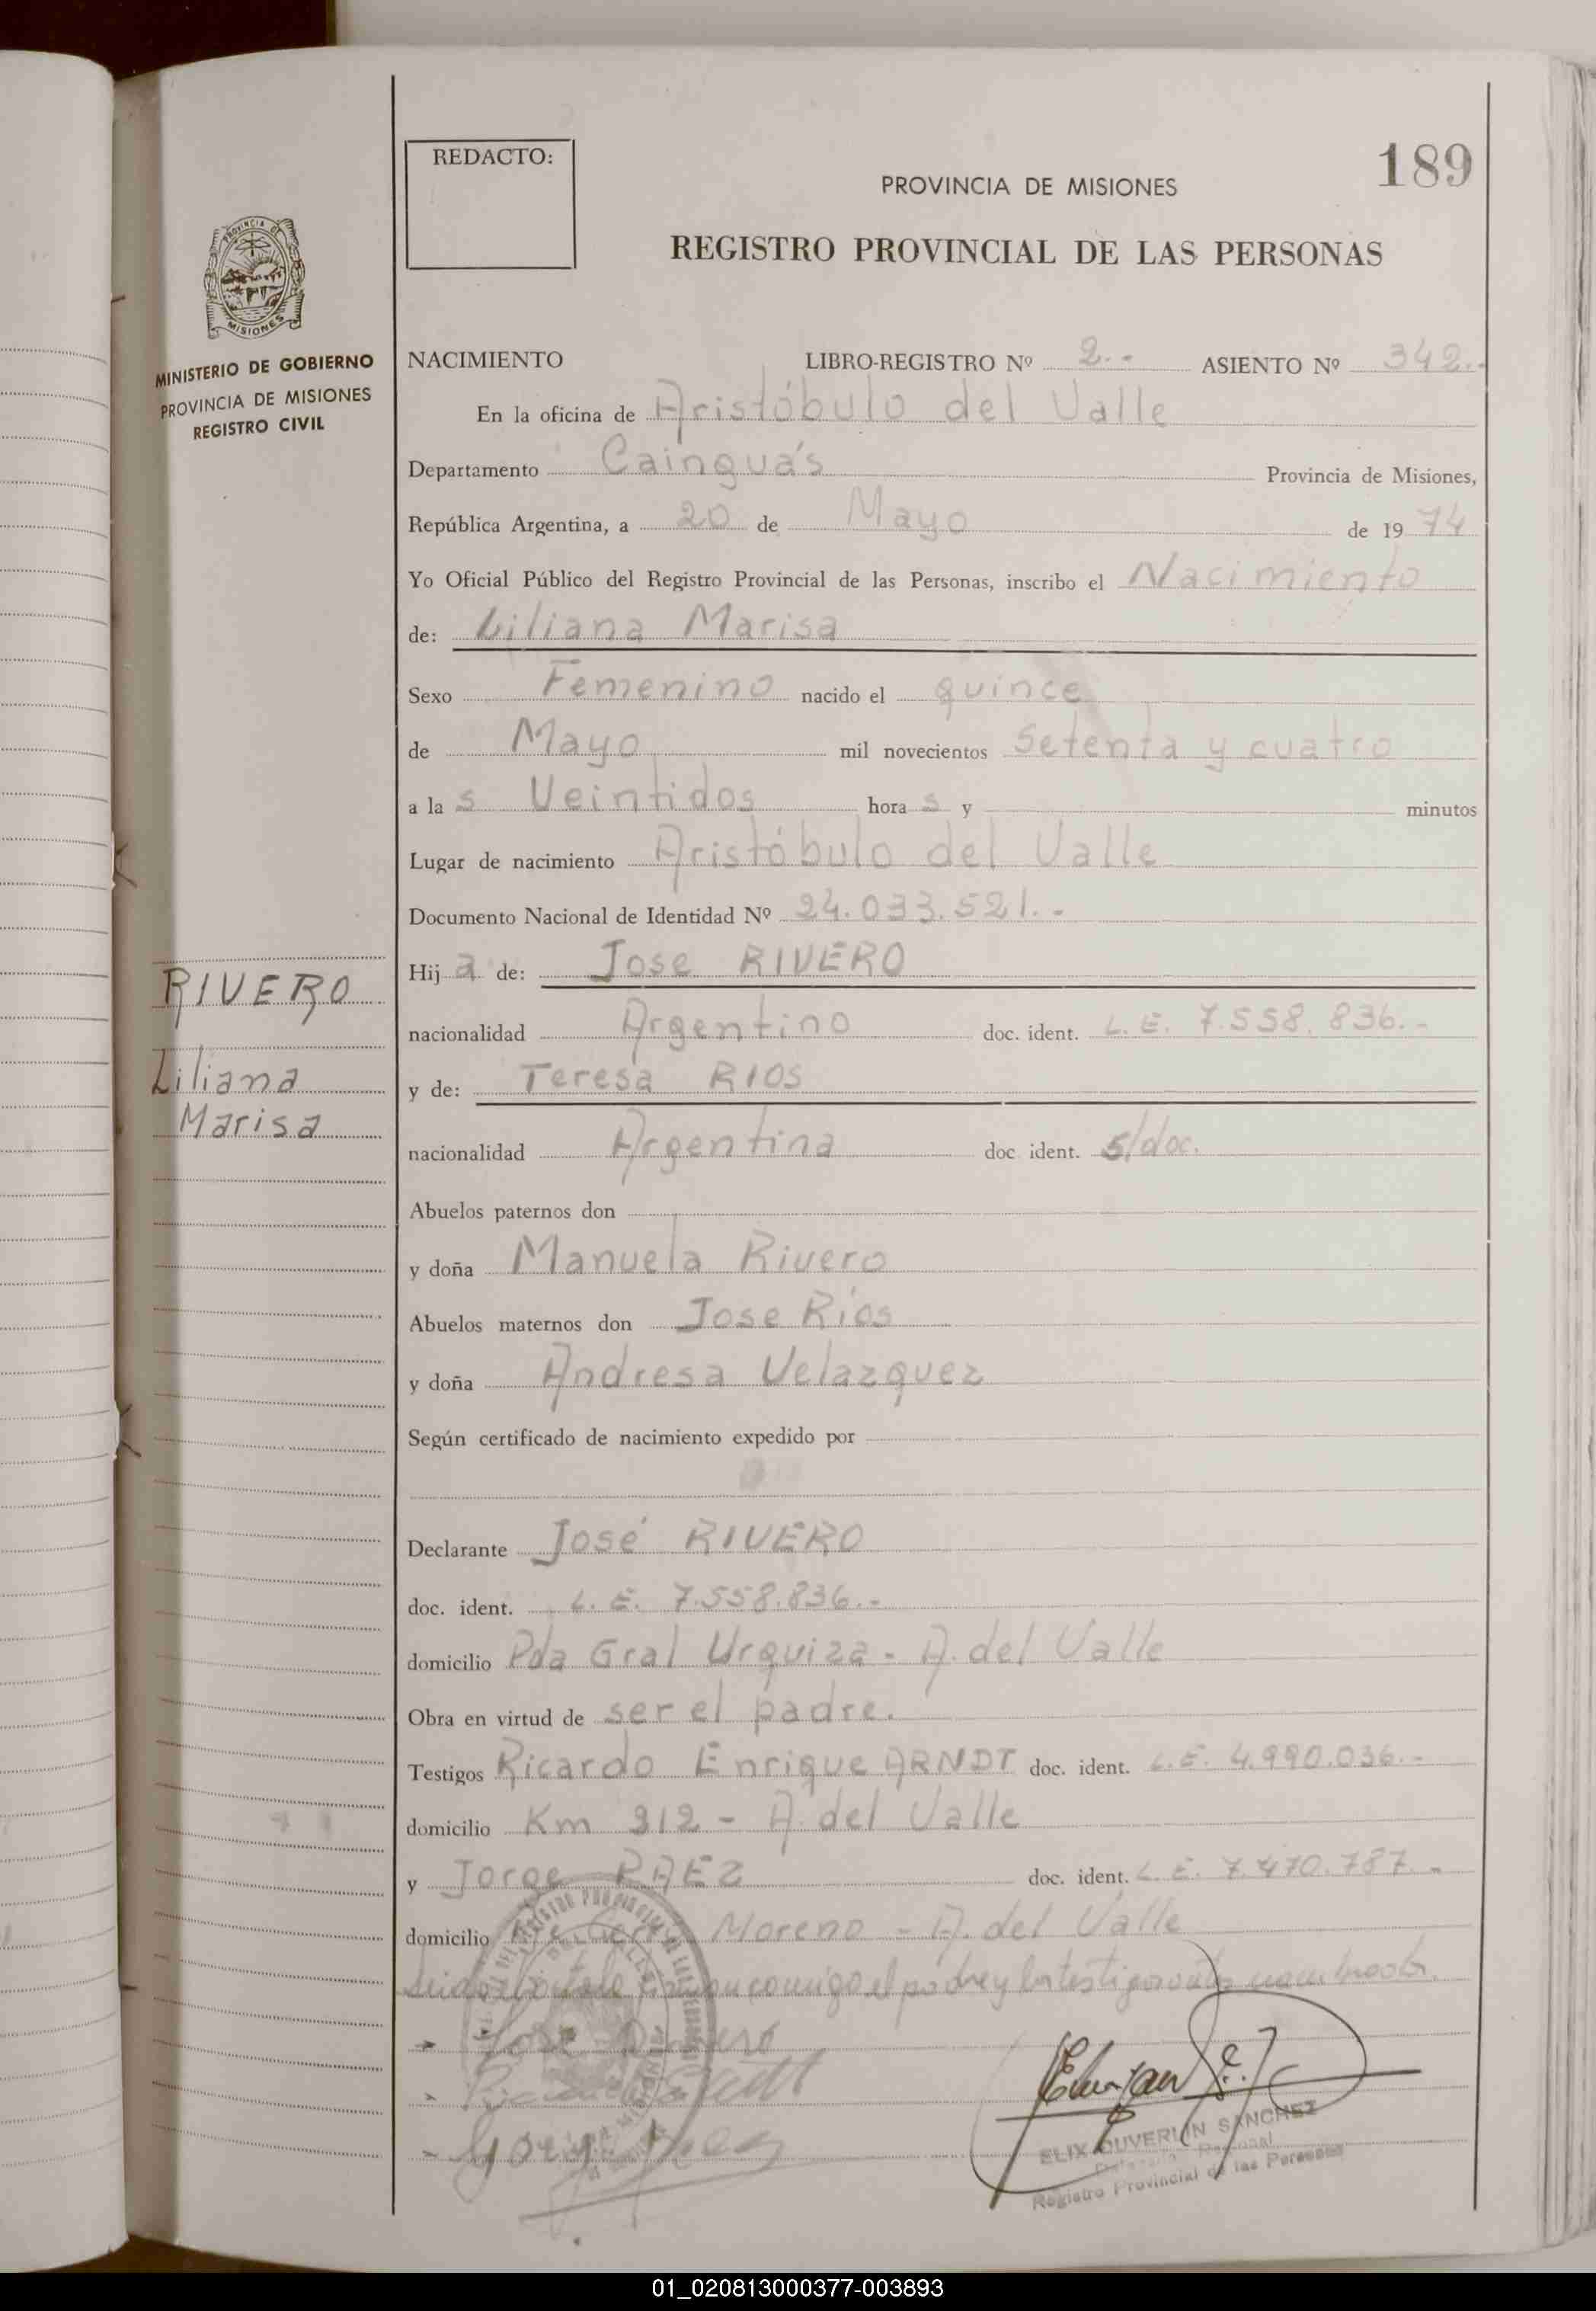 REDACTO:
189
PROVINCIA DE MISIONES
REGISTRO PROVINCIAL DE LAS PERSONAS
PROVINCIA DE
MISIONES
MINISTERIO DE GOBIERNO
PROVINCIA DE MISIONES
REGISTRO CIVIL
NACIMIENTO LIBRO-REGISTRO Nº 2.- ASIENTO Nº 342.-
En la oficina de Aristóbulo del Valle
Departamento Cainguás Provincia de Misiones,
República Argentina, a 20 de Mayo de 19 74
Yo Oficial Público del Registro Provincial de las Personas, inscribo el Nacimiento
de: Liliana Marisa
Sexo Femenino nacido el quince
de Mayo mil novecientos Setenta y cuatro
a la s Veintidos hora s y minutos
Lugar de nacimiento Aristóbulo del Valle
Documento Nacional de Identidad Nº 24.033.521.-
RIVERO
Liliana
Marisa
Hij a de: Jose RIVERO
nacionalidad Argentino doc. ident. L.E. 7.558.836.-
y de: Teresa RIOS
nacionalidad Argentina doc ident. s/doc.
Abuelos paternos don
y doña Manuela Rivero
Abuelos maternos don Jose Ríos
y doña Andresa Velazquez
Según certificado de nacimiento expedido por
Declarante José RIVERO
doc. ident. L.E. 7.558.836.-
domicilio Pda Gral Urquiza - A. del Valle
Obra en virtud de ser el padre.
Testigos Ricardo Enrique ARNDT doc. ident. L.E. 4.990.036.-
domicilio Km 212 - A. del Valle
y Jorge PAEZ doc. ident. L.E. 7.470.787.-
domicilio Moreno - A. del Valle
conmigo el padre y los testigos antes nombrados.
Jose Rivero
SANCHEZ
Registro Provincial de las Personas
01_020813000377-003893